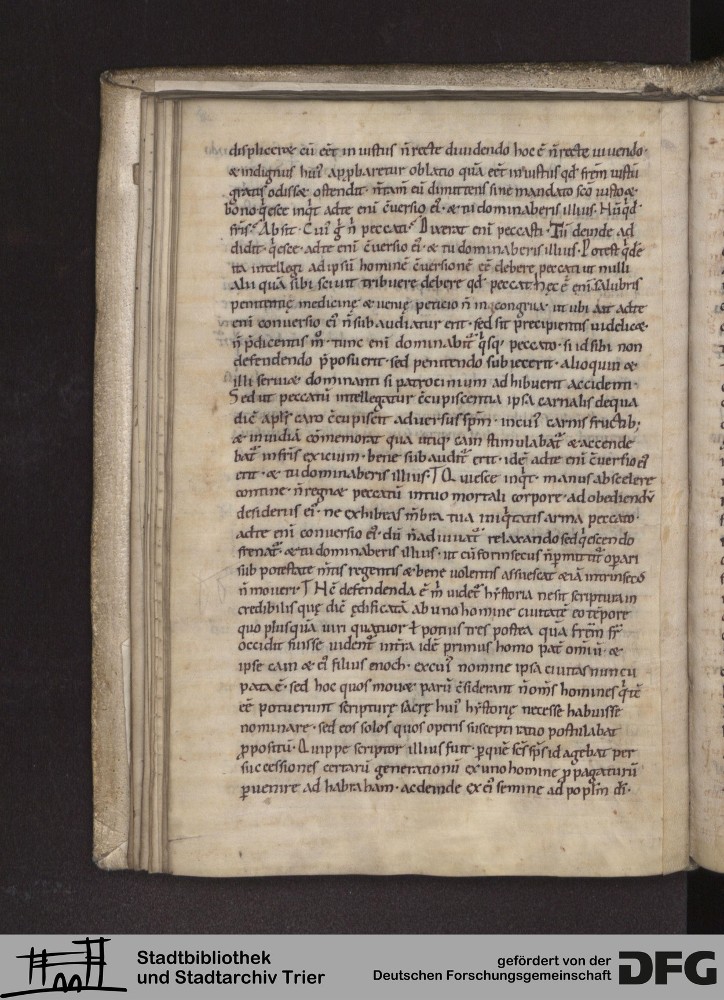 displiceræ cū eēt iniustus n̄ recte diuidendo hoc ē n̄ recte uiuendo·
& indignus huiꝰ app̱baretur oblatio quā eēt iniustus qd̓ frēm iustū
gratis odisset ostendit· n̄ tam̄ eū dimittens sine mandato scō iusto &
bono q̓esce inqͥt ad te eni ↄuersio eiꝰ· & tu dominaberis illius· Nūqͥd
fr̄is? Absit· Cuiꝰ gͥ n̄ peccati? Dixerat eni peccasti· Tū deinde ad
didit· q̓esce· ad te eni ↄuersio eiꝰ· & tu dominaberis illius· Potest qͥdē
ita intellegi ad ipsū hominē ↄuersionē eē debere peccati ut nulli
alii quā sibi sciat tribuere debere qd̓ peccat hec ē eni salubris
penitentię medicinę & uenię peticio n̄ incongrua· ut ubi ait ad te
eni conuersio eiꝰ n̄ subaudiatur erit· sed sit p̄recipientis uidelicet
n̄ p̄dicentis m̄· tunc eni dominabit̄ qͥsq; peccato· si id sibi non
defendendo p̄posuerit· sed penitendo subiecerit· alioquin &
illi seruiæt dominanti si patrocinium adhibuerit accidenti·
Sed ut peccatū intellegatur ↄcupiscentia ipsa carnalis de qua
dic̄ aplꝰ caro ↄcupiscit aduersus spm̄· in cuiꝰ carnis fructib;
& inuidiā cōmemorat qua utiq; cain stimulabat̄ & accende
bat̄ in fr̄is exicium· bene subaudit̄ erit· idē ad te eni ↄuersio eiꝰ
erit· & tu dominaberis illius· Quiesce inqͥt· manus ab scelere
contine· n̄ regnæt peccatū in tuo mortali corpore· ad obediendū
desideriis eiꝰ· ne exhibeas mēbra tua iniqͥtatis arma peccato·
ad te eni conuersio eiꝰ· dū n̄ adiuuat̄ relaxando sed q̓escendo
frenat̄· & tu dominaberis illius· ut cū forinsecus n̄ p̱mittit̄ op̱ari
sub potestate m̄tis regentis & bene uolentis assuescat & iā intrinsecꝰ
n̄ moueri· Nc̄ defendenda ē m̄ uidet̄ hystoria ne sit scriptura in
credibilis quę dic̄ ędificatā ab uno homine ciuitatē eo tēpore
quo plusquā uiri quatuor ł potius tres postea quā frēm fr̄
occidit fuisse uident̄ in tr̄ra idē primus homo pat̄ omiū· &
ipse cain & eiꝰ filius enoch· ex cuiꝰ nomine ipsa ciuitas nuncu
pata ē· sed hoc quos mouet parū ↄsiderant n̄ om̄s homines qͥ tē
eē potuerunt scripturę sacrę huiꝰ hystorię necesse habuisse
nominare· sed eos solos quos operis suscepti ratio postulabat
p̱positū· Quippe scriptor illius fuit· p̱ quē scs̄ sps̄ id agebat per
successiones certarū generationū ex uno homine p̱pagatarū
p̱uenire ad habraham· ac deinde ex eiꝰ semine ad popłm dī·
Stadtbibliothek
und Stadtarchiv Trier
gefördert von der
Deutschen Forschungsgemeinschaft
DFG